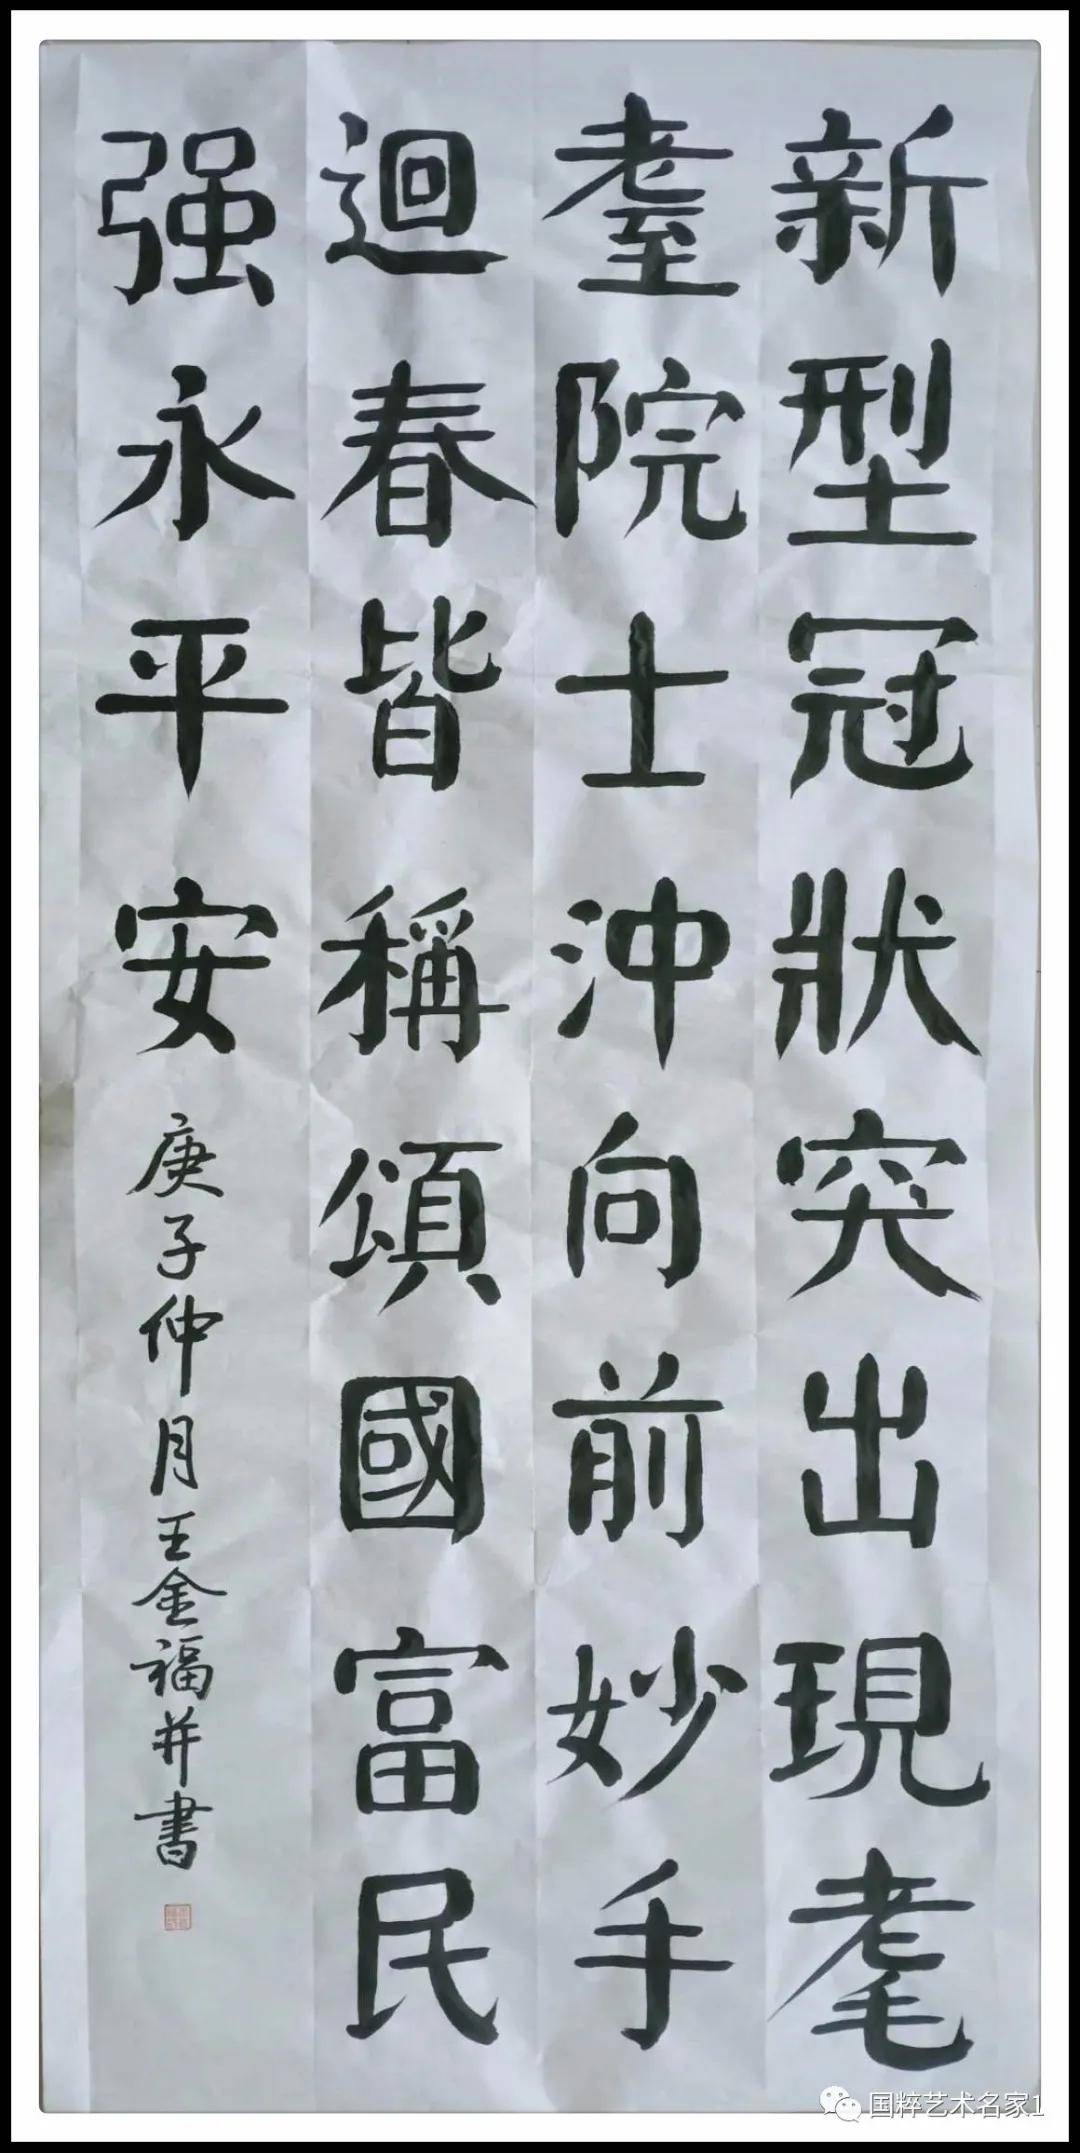 新型冠狀突出現耄
耋院士沖向前妙手
迴春皆稱頌國富民
强永平安
庚子仲月王金福并書
国粹艺术名家1